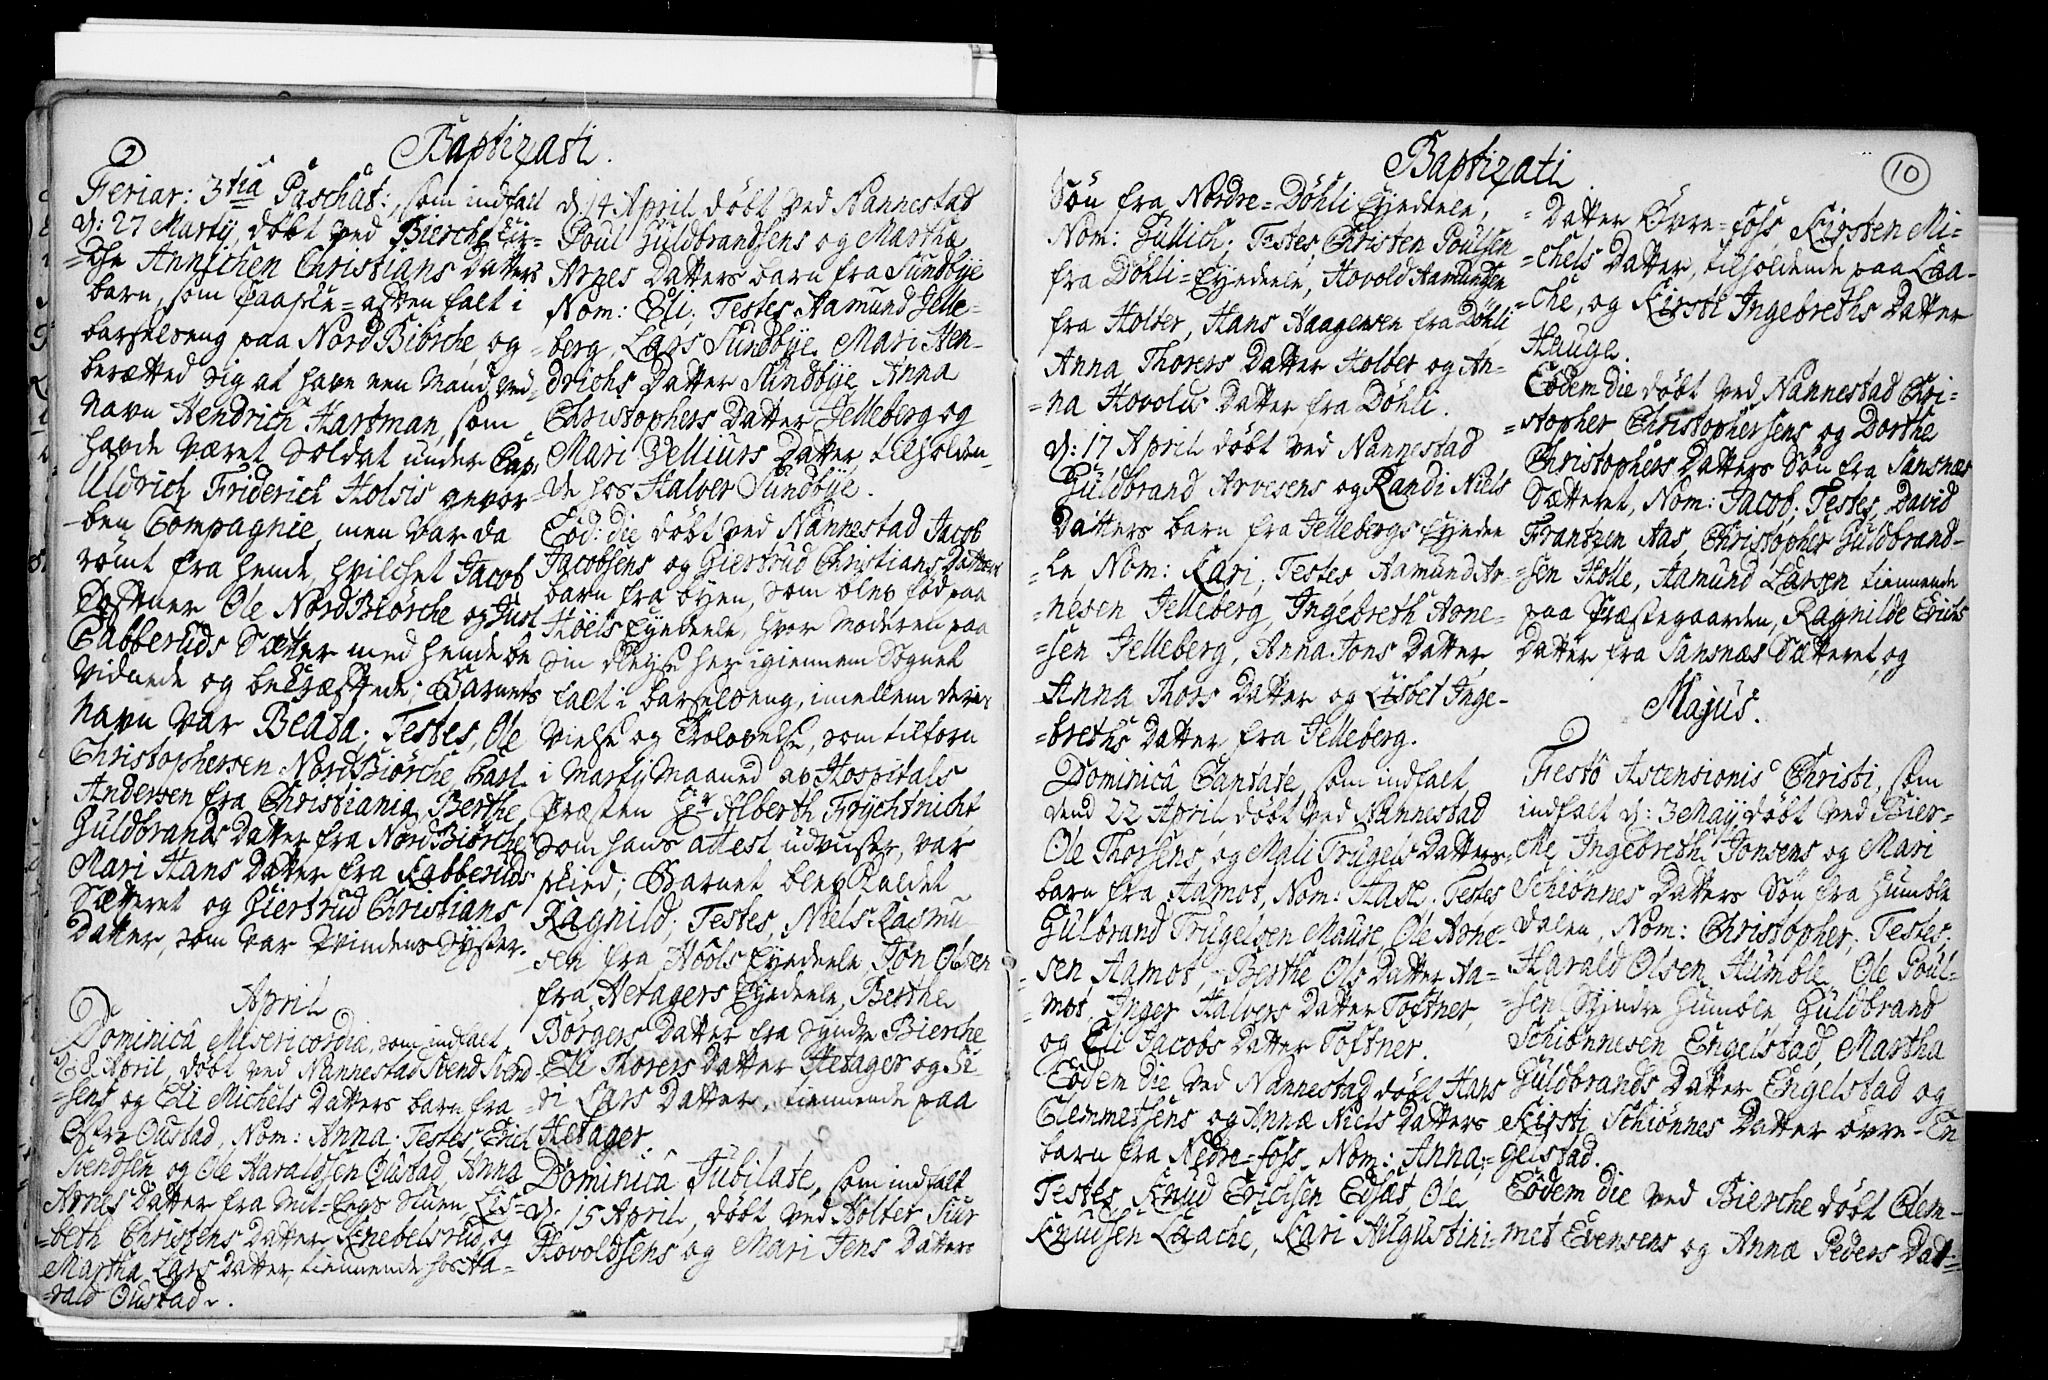 Baptizati.
Feriar: 3tia Paschat:, som indfalt
d: 27 Martij, døbt ved Bierche Kir-
=che Annichen Christians Datters
barn, som Paaske=aften falt i
barselseng paa Nord Biørche og
berætted sig at have een Mand, ved
Navn Hendrich Hartman, som
hafde været Soldat under Cap:
Uldrich Friderich Holsts gevor-
-ben Compagnie, men var da
rømt fra hende, hvilchet Jacob
Toftner Ole NordBiørche og Just
Kabberuds Sætter med hende be
vidnede og bekræftede; Barnets
Navn var Beata. Testes, Ole
Christophersen NordBiørche, Carl
Andersen fra Christiania, Berthe
Guldbrands Datter fra NordBiørche
Mari Hans Datter fra Kabberuds
Sætteret og Giertrud Christians
Datter, som var Qvindens Syster.
April
Dominicâ Misericordia, som indfalt
d: 8 April, døbt ved Nannestad Svend Svend
=sens og Eli Michels Datters barn fra
Østre Oustad, Nom: Anna. Testes Erich
Svendsen og Ole Haraldsen Oustad, Anna
Arnes Datter fra Mit-Engs Stuen, Lis-
=beth Christens Datter Knebelsrud, og
Martha Lars Datter, tiennende hos Ha-
=rald Oustad.
d: 14 April døbt ved Nannestad
Poul Guldbrandsens og Martha
Arnes Datters barn fra Sundbye
Nom: Eli; Testes Aamund Jelle-
=berg, Lars Sundbye, Mari Hen-
drichs Datter Sundbye, Anna
Christophers Datter Jelleberg og
Mari Velliurs Datter, tilholden-
de hos Halvor Sundbye.
Eod: die døbt ved Nannestad Jacob
Jacobsens og Giertrud Christians Datters
barn fra byen, som blev fød paa
Høels Eyedeele, hvor Moderen paa
sin Reyse her igiennem Sognet
falt i barselseng, imellem deres
Vielse og Trolovelse, som tilforn
i Martij Maaned av Hospitals
Præsten Hr Alberth Frychtnicht
som hans attest udviiser, var
skeed; Barnet blev kaldet
Ragnild; Testes, Niels Rasmu
-sen fra Høols Eyedeele, Jon Olsen
fra Hetagers Eyedeele, Berthe
Børgers Datter fra Syndre Bierche
Eli Thorers Datter Hetager og Si-
-ri Lars Datter, tiennende paa
Hetager.
Dominicâ Jubilate, som indfalt
d: 15 April, døbt ved Holter Siur
Hovoldsens og Mari Jens Datters
Baptizati
10
Søn fra Nordre=Døhli Eyedeele,
Nom: Gullich. Testes, Christen Poulsen
fra Døhli=Eyedeele, Hovold Aamundsen
fra Holter, Hans Haagensen fra Døhli
Anna Thorers Datter Holter og An-
=na Hovolds Datter fra Døhli.
d: 17 April døbt ved Nannestad
Guldbrand Arvesens og Randi Niels
Datters barn fra Jellebergs Eyedee
=le, Nom: Kari; Testes Aamund Ar-
=nesen Jelleberg, Ingebreth Arne-
=sen Jelleberg, Anna Jons Datter,
Anna Thors Datter og Lisbet Inge-
=breths Datter fra Jelleberg.
Dominicâ Cantate, som indfalt
dend 22 April døbt ved Nannestad
Ole Thorsens og Mali Trugels Datters
barn fra Aamot, Nom: Hase. Testes
Gulbrand Trugelsen Mause, Ole Arne-
=sen Aamot, Berthe Ols Datter Aa-
=mot, Inger Halvors Datter Toftner
og Eli Jacobs Datter Toftner.
Eodem die ved Nannestad døbt Hans
Clemmetsens og Annæ Niels Datters
barn fra Nedre=Foss, Nom: Anna;
Testes, Knud Erichsen Edsæt Ole
Knudsen Laache, Kari Augustini-
=Datter Øvre=Foss, Kirsten Mi-
=chels Datter, tilholdende paa Laa-
=che, og Kirsti Ingebreths Datter
Hauge.
Eodem die døbt ved Nannestad Chri-
=stopher Christophersens og Dorthe
Christophers Datters Søn fra Sansnæs
Sætteret, Nom: Jacob. Testes, David
Frantzen Aas, Christopher Guldbrand-
=sen Holle, Aamund Larsen tiennende
paa Præstegaarden, Ragnilde Erichs
Datter fra Sansnæs Sætteret, og
Majus.
Festô Ascensionis Christi, som
indfalt d: 3 Maij døbt ved Bier=
=che Ingebreth Jonsens og Mari
Schiønnes Datters Søn fra Humble
dalen, Nom: Christopher; Testes;
Harald Olsen Humble, Ole Poul-
=sen Syndre Humble Guldbrand
Schiønnesen Engelstad, Martha
Guldbrands Datter Engelstad og
Kirsti Schiønnes Datter øvre-En
gelstad.
Eodem die ved Bierche døbt Clem-
met Evensens og Anna Peders Dat=